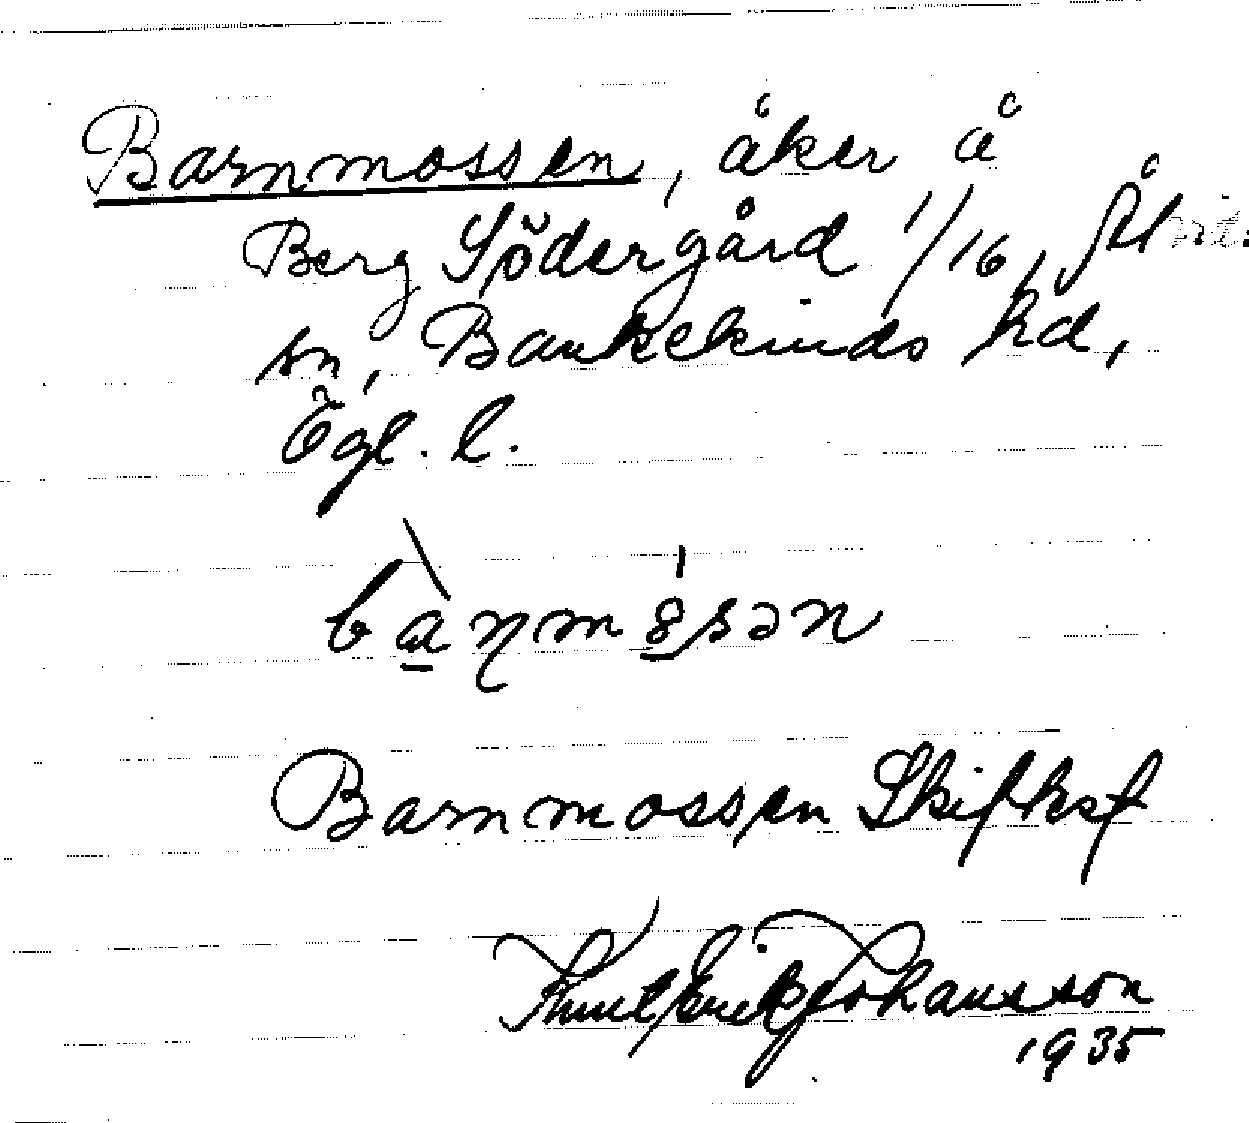 Barnmossen, åker å
Berg Södergård 1/16,
sn, Bankekinds hd,
Ögl. l.
bànmósən
Barnmossen Skifteskf
Knut Erik Johansson
1935